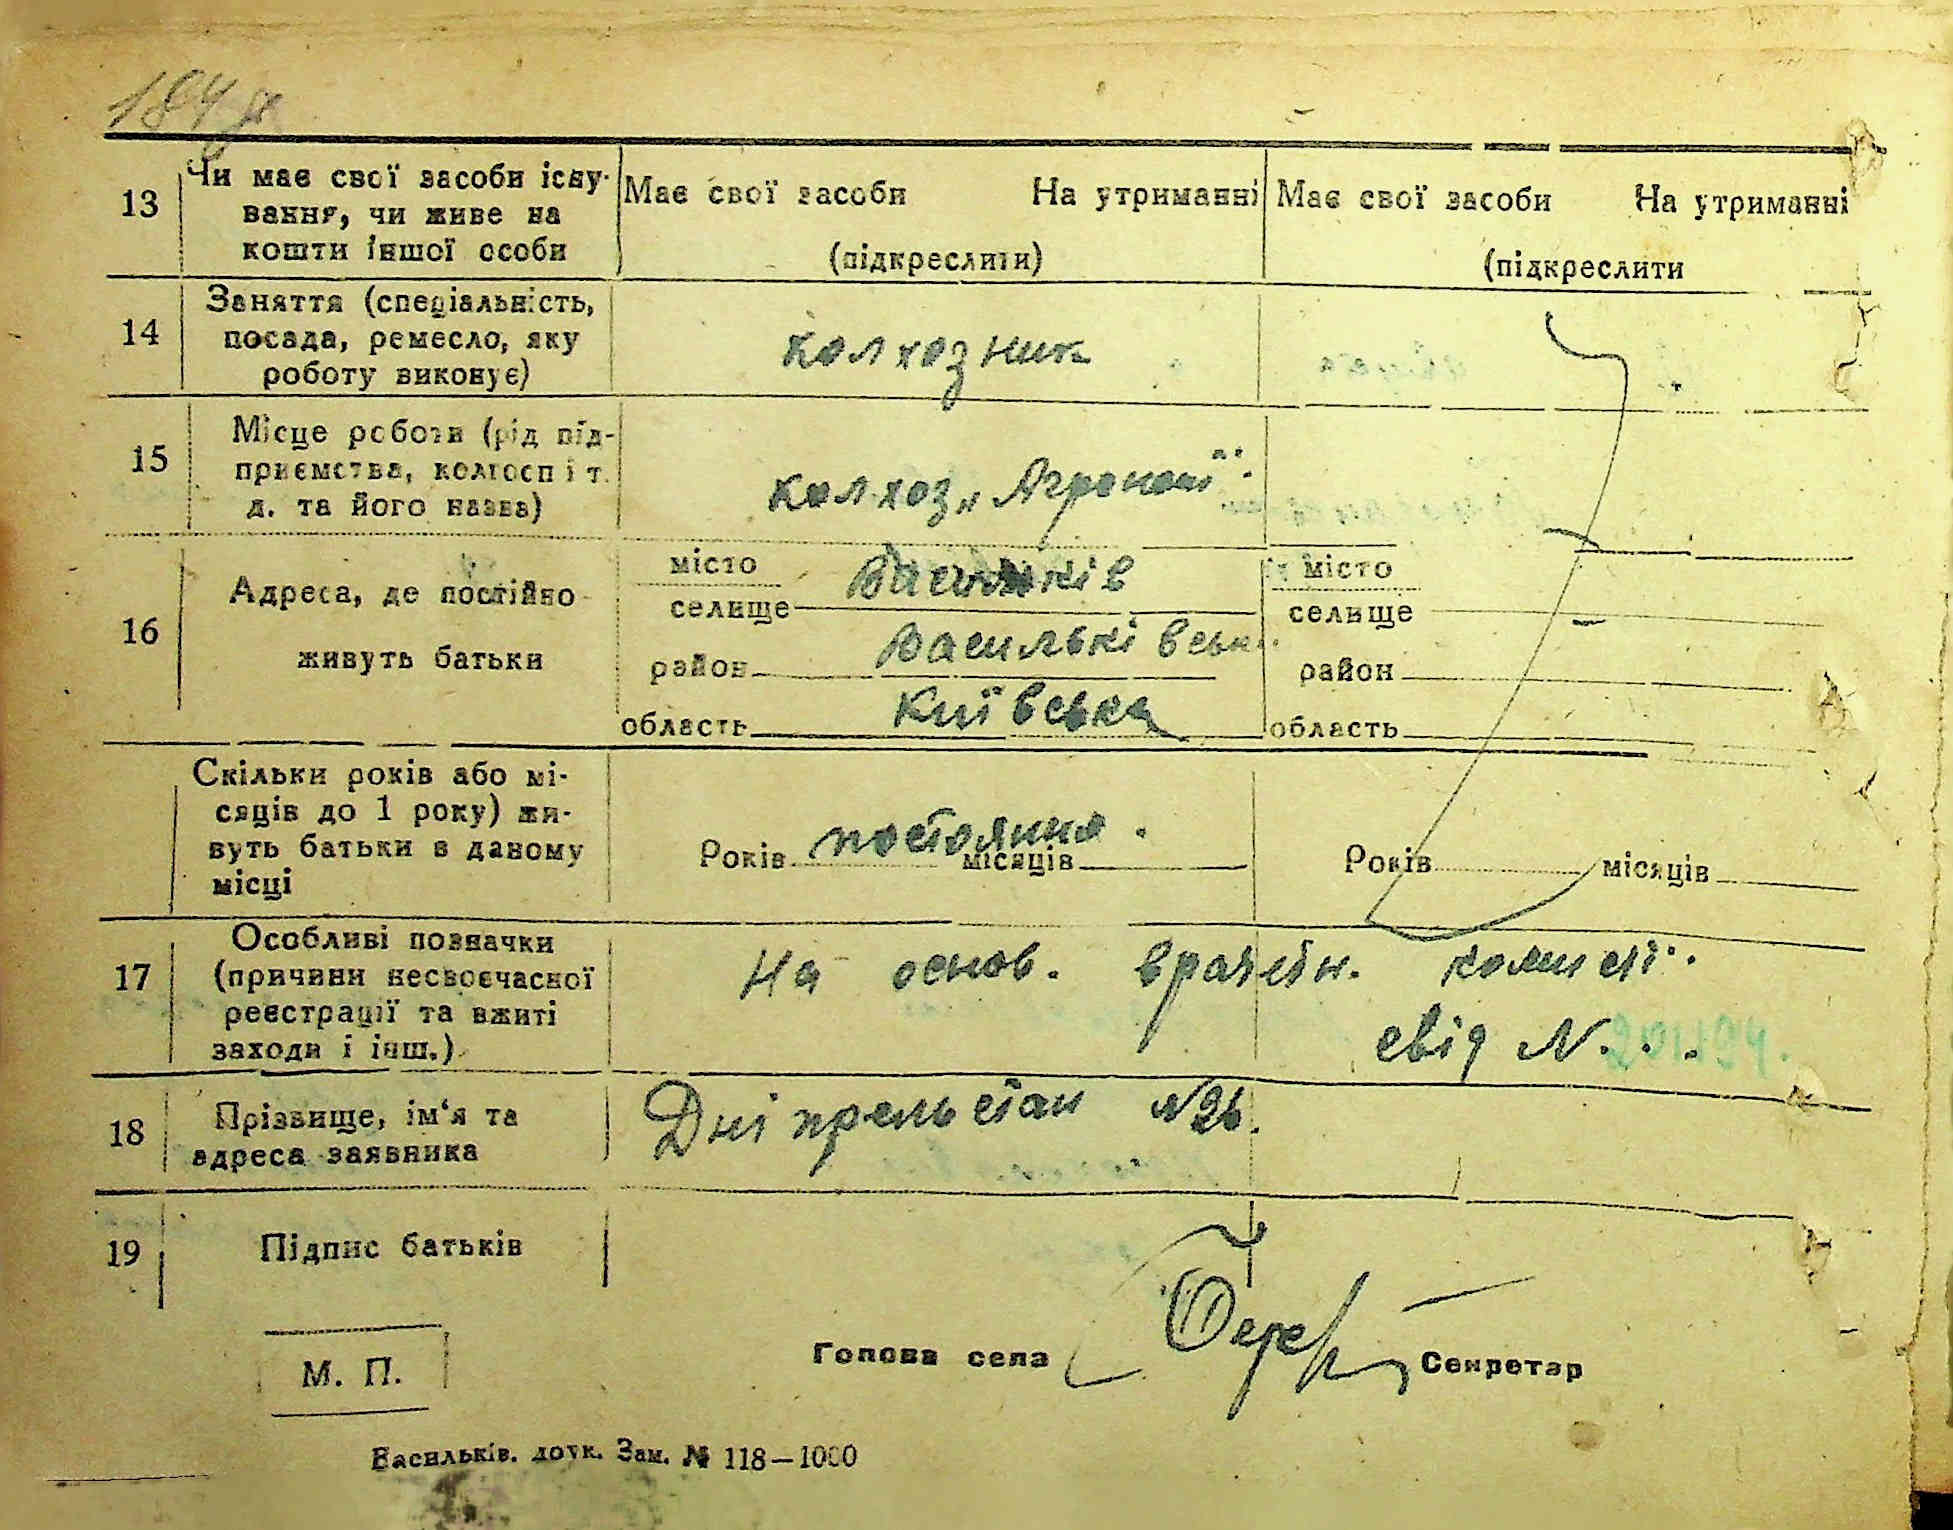 13 Чи має свої засоби існу-
вання, чи живе на
кошти іншої особи
Має свої засоби На утриманні
(підкреслити)
Має свої засоби На утриманні
(підкреслити
14 Заняття (спеціальність,
посада, ремесло, яку
роботу виконує)
колхозник
15 Місце роботи (рід під-
приємства, колгосп і т.
д. та його назва)
колхоз
16 Адреса, де постійно
живуть батьки
місто
селище Васильків
район Васильківськ.
область Київська
місто
селище
район
область
Скільки років або мі-
сяців до 1 року) жи-
вуть батьки в даному
місці
Років постоянно. місяців
Років місяців
17 Особливі позначки
(причини несвоєчасної
реєстрації та вжиті
заходи і інш.)
На основ. комисії.
свід N.
18 Прізвище, ім'я та
адреса заявника
N 26.
19 Підпис батьків
М. П.
Голова села
Секретар
Васильків. друк. Зам. № 118—1000